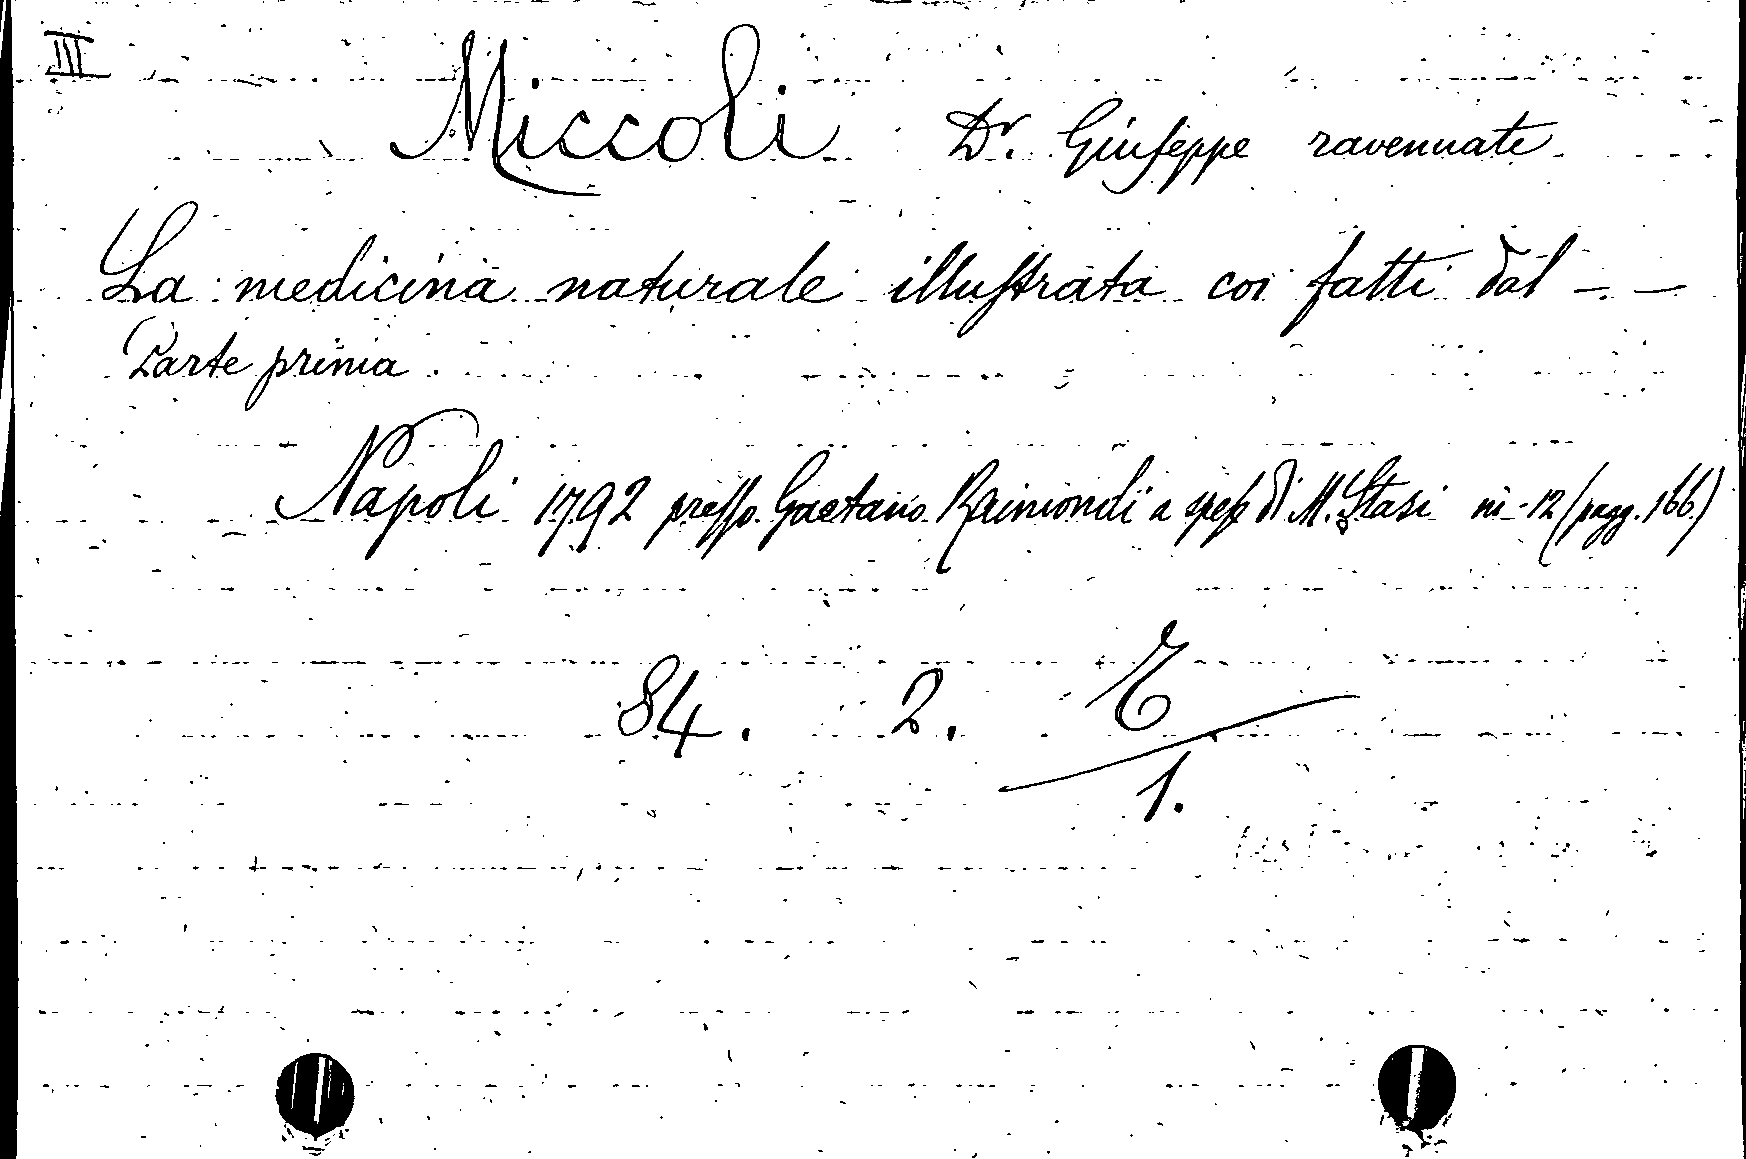 III
Miccoli Dr. Giuseppe ravennate
La medicina naturale illustrata coi fatti dal — —
Parte prima
Napoli 1792 presso Gaetano Raimondi a spese di M. Stasi in-12 (pagg. 166)
84. 2. E
1.